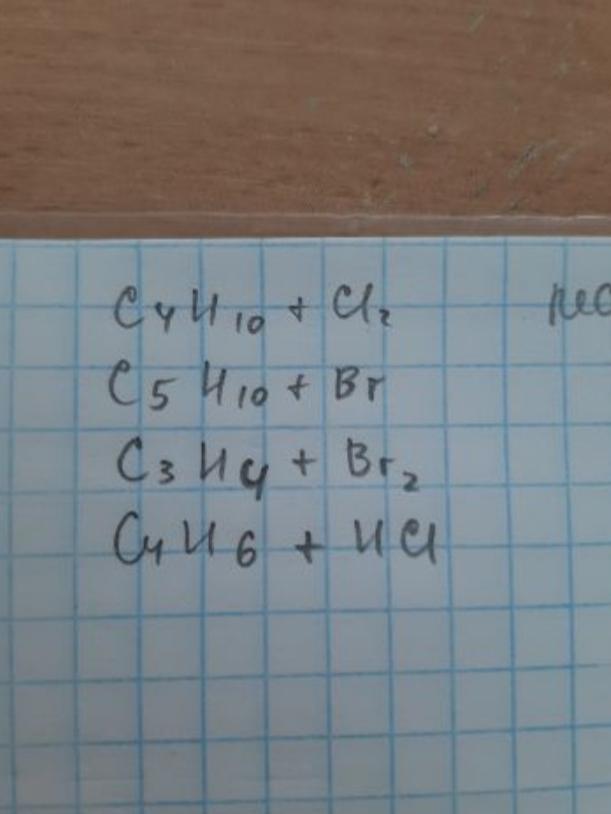 C₄H₁₀ + Cl₂
C₅H₁₀ + Br
C₃H₄ + Br₂
C₄H₆ + HCl